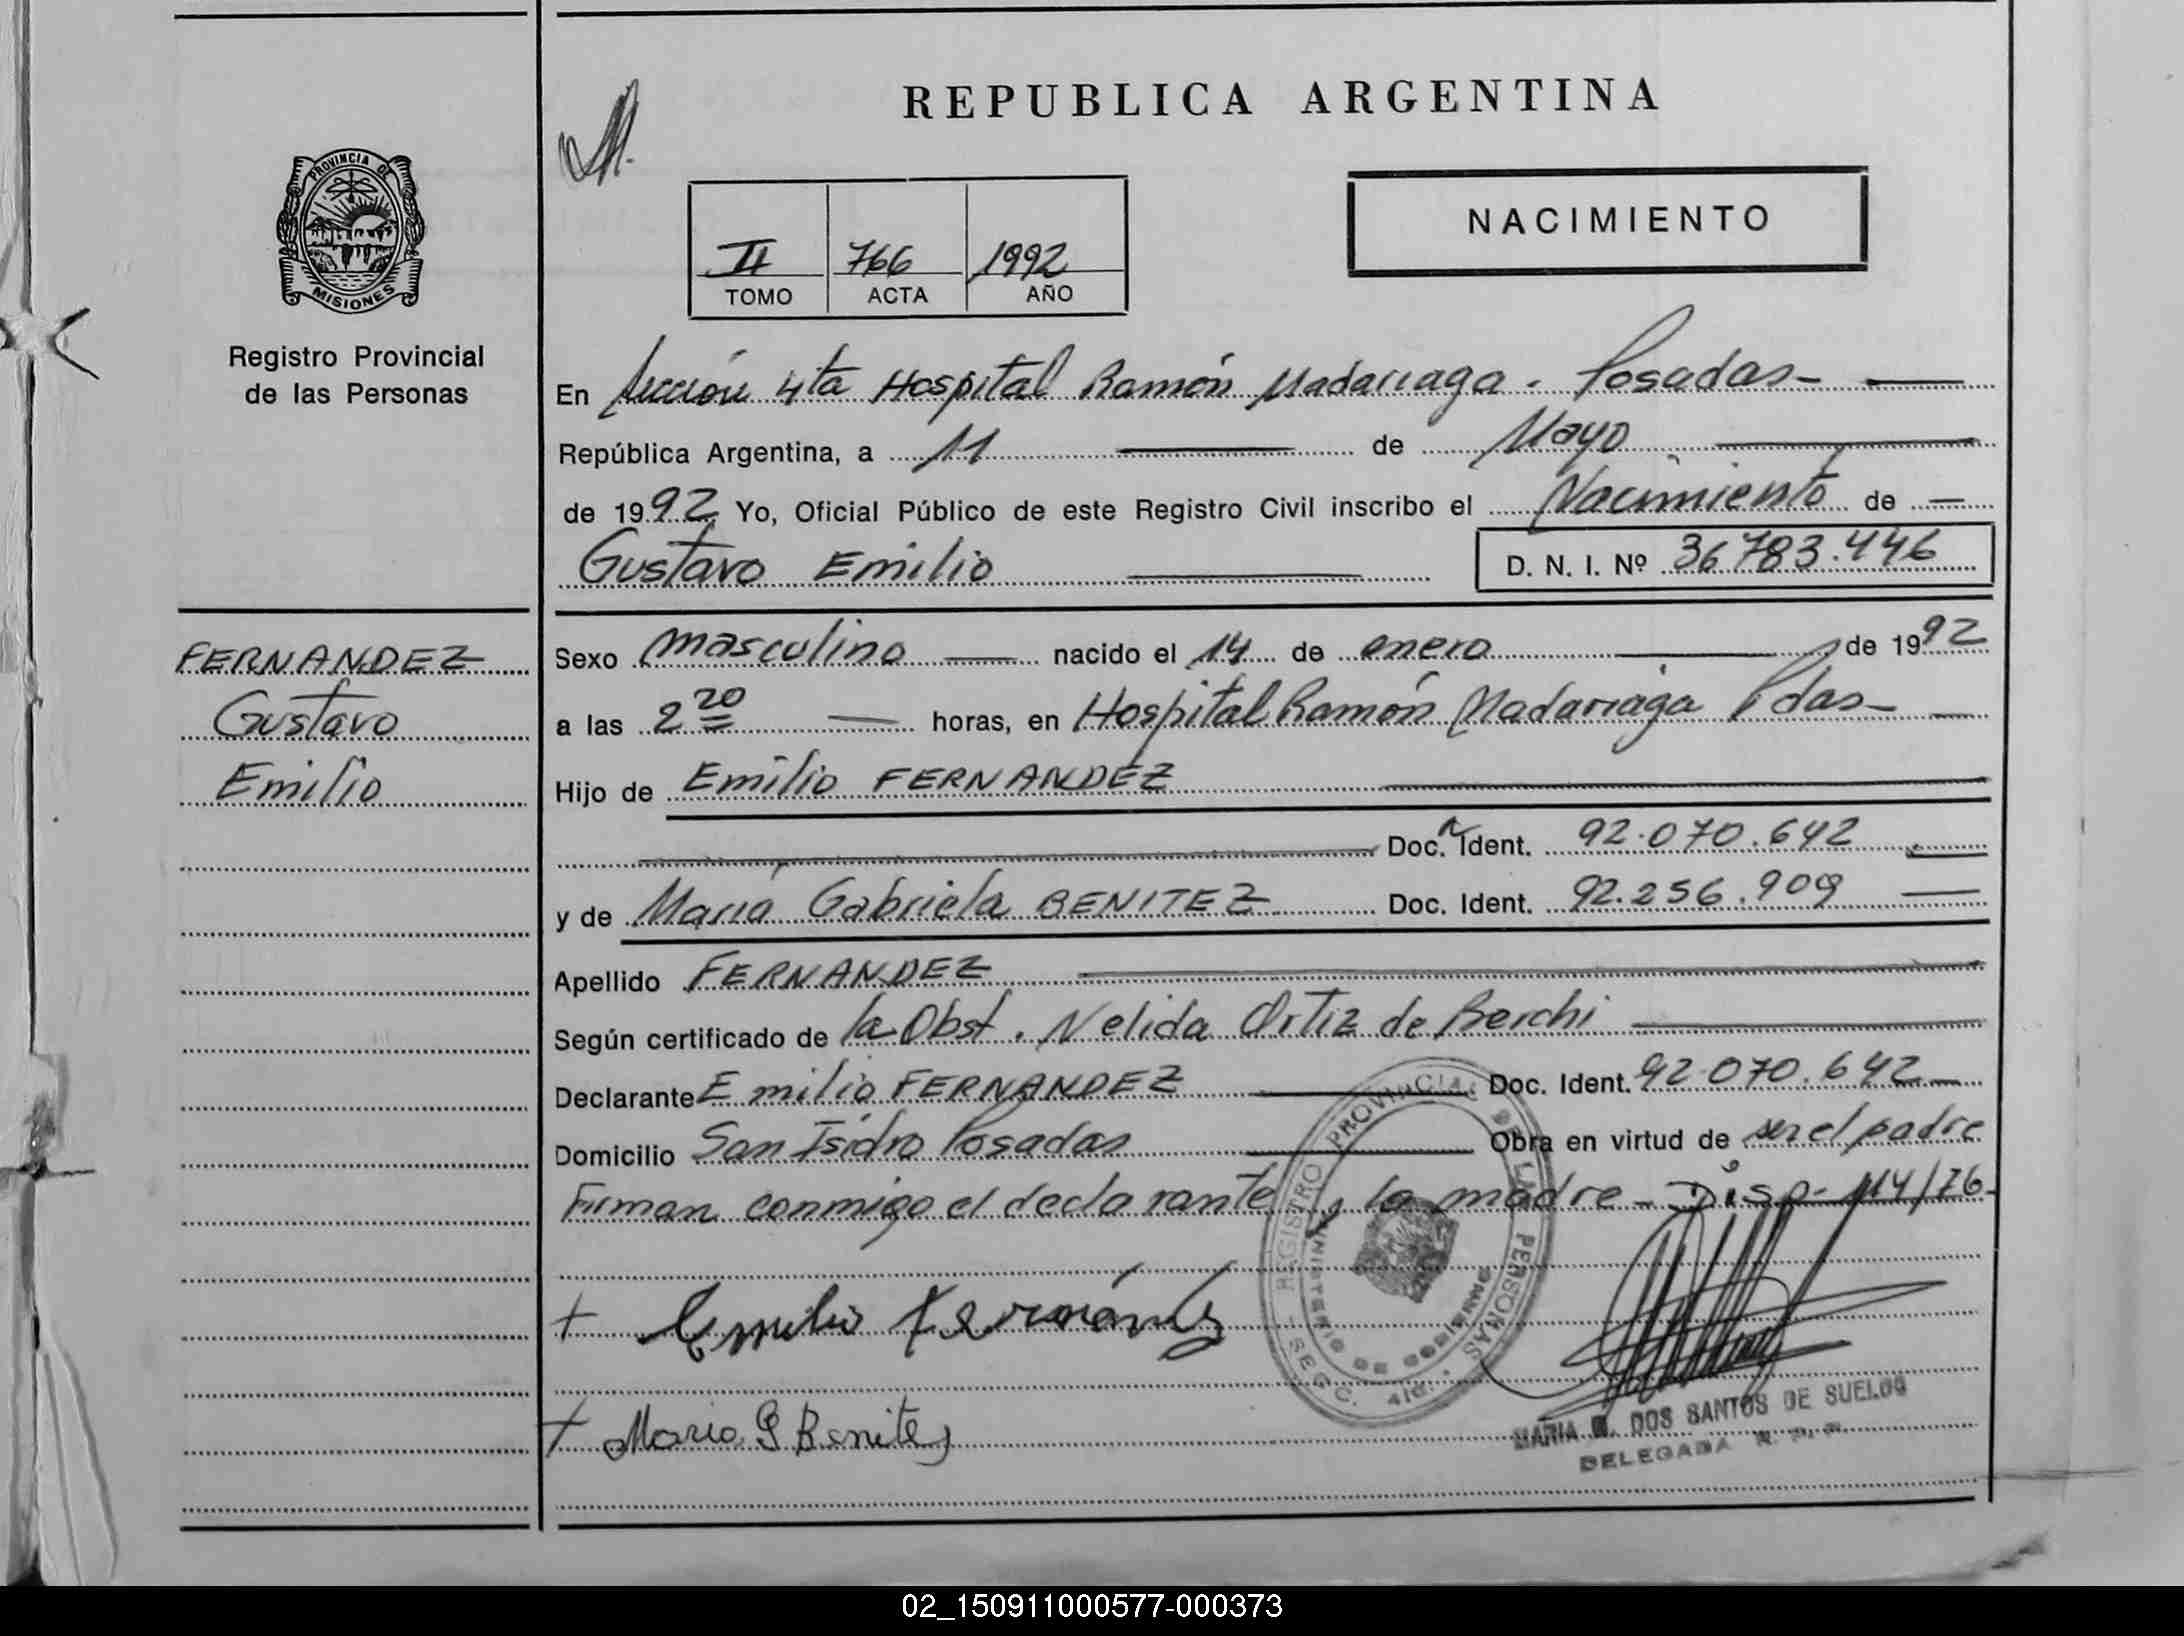 REPUBLICA ARGENTINA
PROVINCIA DE
MISIONES
Registro Provincial
de las Personas
NACIMIENTO
II 766 1992
TOMO ACTA AÑO
En Sección 4ta Hospital Ramón Madariaga - Posadas -
República Argentina, a 11 de Mayo
de 1992 Yo, Oficial Público de este Registro Civil inscribo el Nacimiento de
Gustavo Emilio D. N. I. Nº 36783.446
FERNANDEZ
Gustavo
Emilio
Sexo masculino nacido el 14 de enero de 1992
a las 2 20 horas, en Hospital Ramón Madariaga Pdas -
Hijo de Emilio FERNANDEZ
Doc. Ident. 92.070.642
y de María Gabriela BENITEZ Doc. Ident. 92.256.909
Apellido FERNANDEZ
Según certificado de la Obst. Nelida Ortiz de Berchi
Declarante Emilio FERNANDEZ Doc. Ident. 92.070.642
Domicilio San Isidro Posadas Obra en virtud de ser el padre
Firman conmigo el declarante y la madre - Disp - 114/76 -
REGISTRO PROVINCIAL DE LAS PERSONAS
MINISTERIO DE GOBIERNO
+ Emilio Fernández
+ Maria G Benitez
MARIA DOS SANTOS DE SUELOS
DELEGADA R. P. P.
02_150911000577-000373